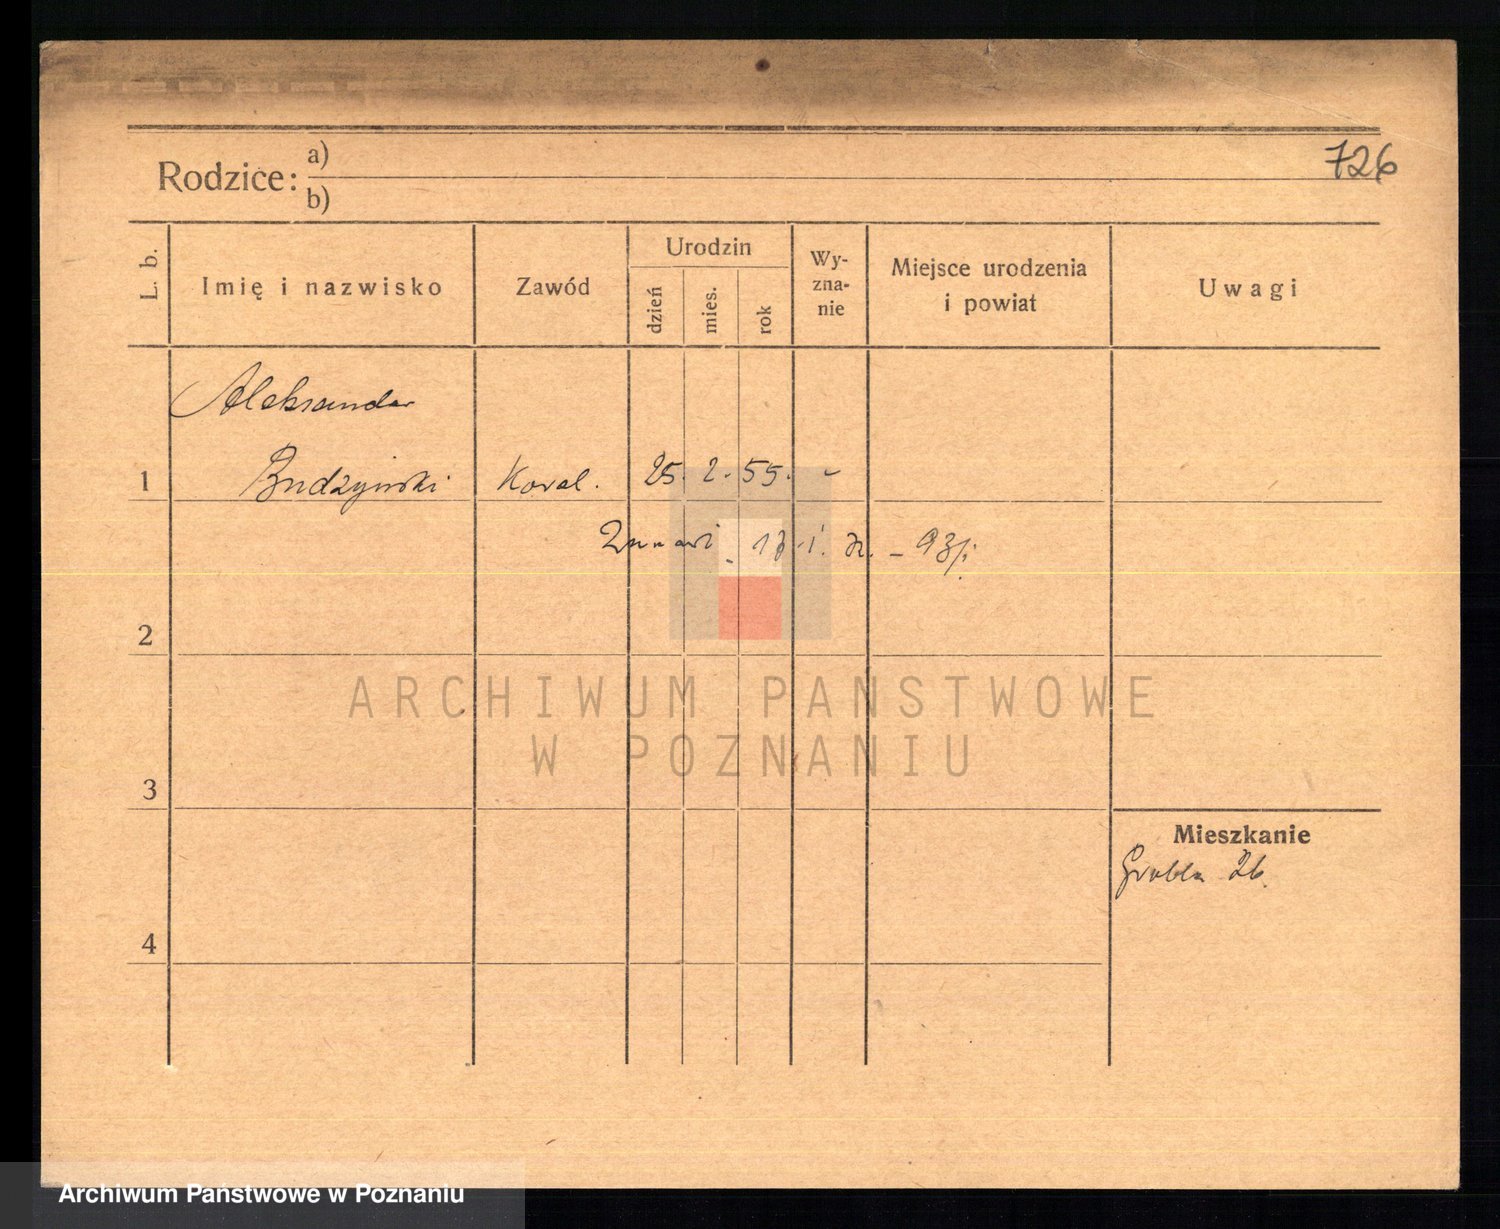 726
Rodzice:
a)
b)
L. b.
Imię i nazwisko
Zawód
Urodzin
dzień
mies.
rok
Wy-
zna-
nie
Miejsce urodzenia
i powiat
Uwagi
Aleksander
1 Budzyński Koval. 25. 2. 55. -
2
3
Mieszkanie
Grobla 26.
4
ARCHIWUM PAŃSTWOWE
W POZNANIU
Archiwum Państwowe w Poznaniu